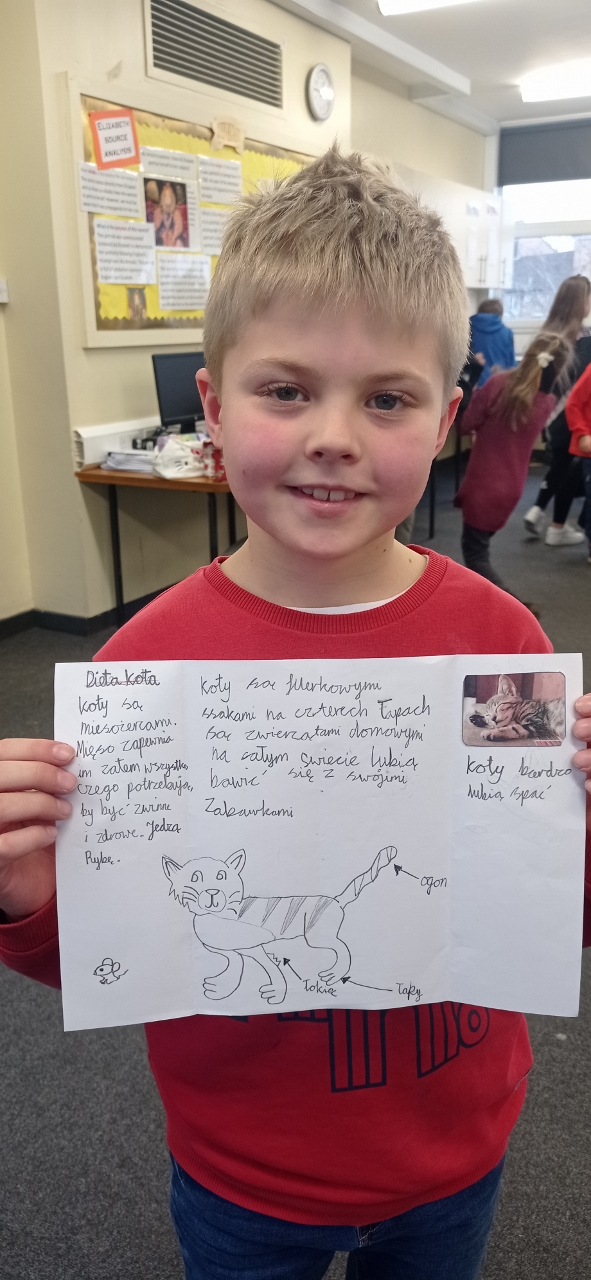 ELIZABETH
SOURCE
ANALYSIS
Dieta kota
Koty są
mięsożercami.
Mięso zapewnia
im zatem wszystko,
czego potrzebują,
by być zwinne
i zdrowe. Jedzą
Rybę.
Koty są futerkowymi
ssakami na czterech Łapach
są zwierzątami domowymi
na całym swiecie lubią
bawić się z swojimi
Zabawkami
Koty bardzo
lubią spać
ogon
Łapy